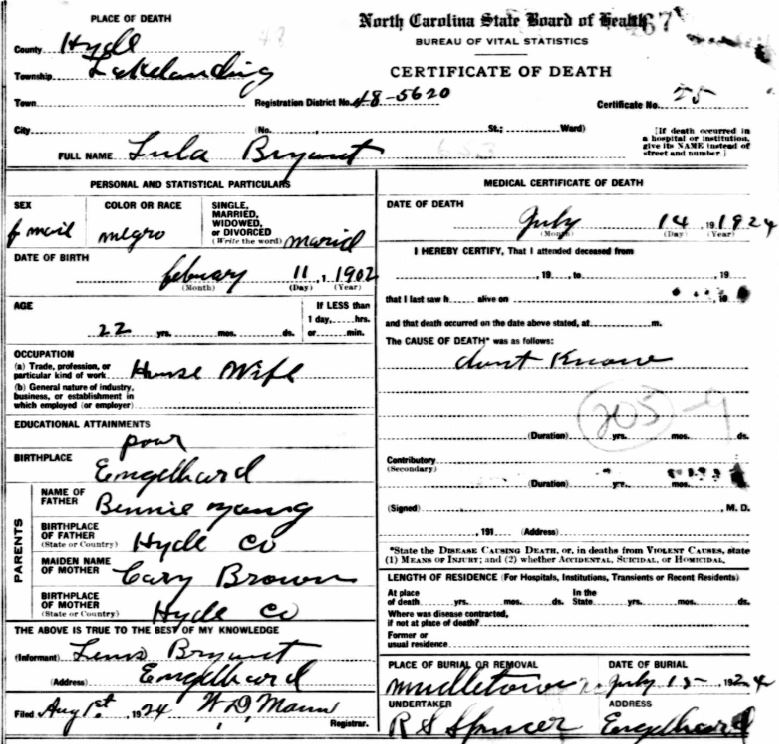 North Carolina State Board of Health
BUREAU OF VITAL STATISTICS
CERTIFICATE OF DEATH
PLACE OF DEATH
County Hyde
Township Lakelanding
Town Registration District No. 48-5620 Certificate No. 25
City (No. , St.; Ward)
[If death occurred in a hospital or institution, give its NAME instead of street and number.]
FULL NAME Lula Bryant
PERSONAL AND STATISTICAL PARTICULARS
SEX f mail
COLOR OR RACE negro
SINGLE, MARRIED, WIDOWED, or DIVORCED (Write the word) marid
DATE OF BIRTH february 11, 1902
(Month) (Day) (Year)
AGE 22 yrs. mos. ds.
If LESS than 1 day, hrs. or min.
OCCUPATION
(a) Trade, profession, or particular kind of work House Wife
(b) General nature of industry, business, or establishment in which employed (or employer)
EDUCATIONAL ATTAINMENTS
pour
BIRTHPLACE Engelhard
PARENTS
NAME OF FATHER Bennie Young
BIRTHPLACE OF FATHER (State or Country) Hyde Co
MAIDEN NAME OF MOTHER Cary Brown
BIRTHPLACE OF MOTHER (State or Country) Hyde Co
THE ABOVE IS TRUE TO THE BEST OF MY KNOWLEDGE
(Informant) Bryant
(Address) Engelhard
Filed Aug 1st, 1924 W D, Mann
Registrar.
MEDICAL CERTIFICATE OF DEATH
DATE OF DEATH
July 14 , 191924
(Month) (Day) (Year)
I HEREBY CERTIFY, That I attended deceased from
, 19 , to , 19
that I last saw h alive on 19
and that death occurred on the date above stated, at m.
The CAUSE OF DEATH* was as follows:
dont Know
205-9
(Duration) yrs. mos. ds.
Contributory
(Secondary)
(Duration) yrs. mos. ds.
(Signed) , M. D.
, 191 (Address)
*State the DISEASE CAUSING DEATH, or, in deaths from VIOLENT CAUSES, state
(1) MEANS OF INJURY; and (2) whether ACCIDENTAL, SUICIDAL, OR HOMICIDAL.
LENGTH OF RESIDENCE (For Hospitals, Institutions, Transients or Recent Residents)
At place of death yrs. mos. ds. In the State yrs. mos. ds.
Where was disease contracted, if not at place of death?
Former or usual residence
PLACE OF BURIAL OR REMOVAL DATE OF BURIAL
Middletown July 15 - 1924
UNDERTAKER ADDRESS
R S Spencer Engelhard